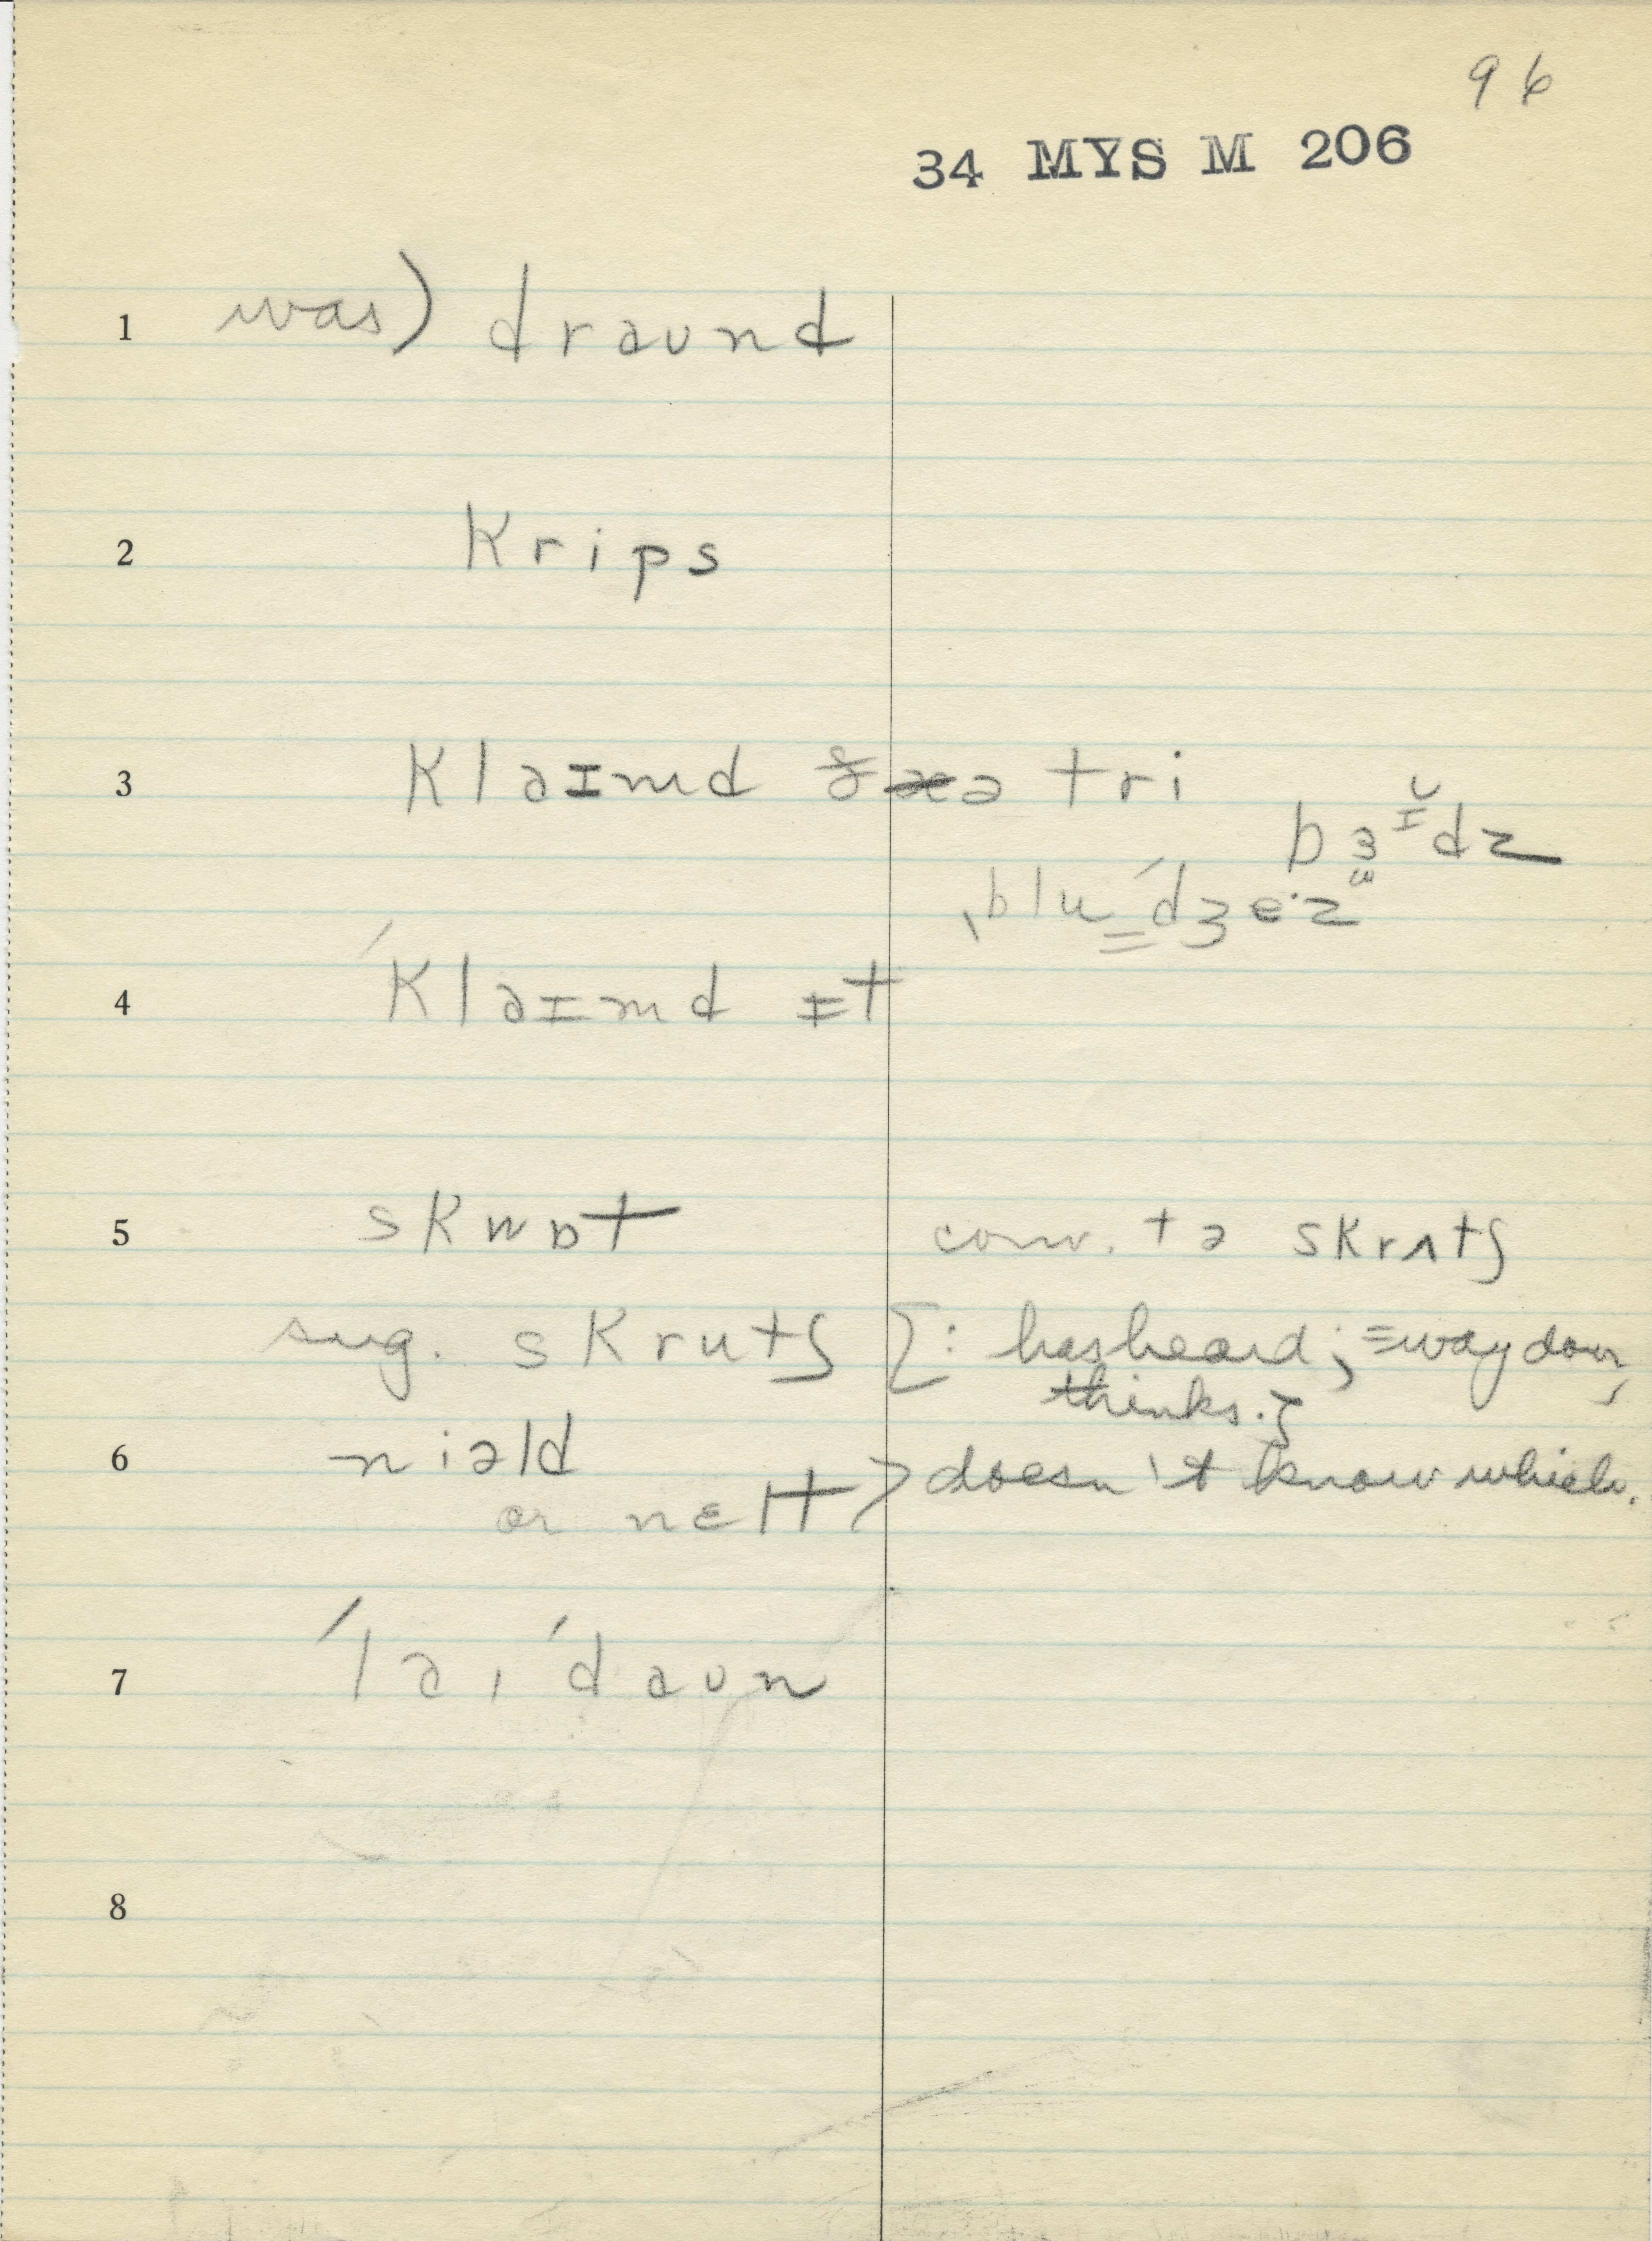 96
34 MYS M 206
1 was) draʊnd
2 krips
3 klaɪmd ə tri
bɜɪ̆dz
ˌblu ˈdʒe·z
4 ˈklaɪmd ɪt
5 skwɒt conv. tə skrʌtʃ
sug. skrutʃ [: has heard; =way down,
thinks.]
6 niəld
or nɛlt > doesn't know which.
7 ˈlaɪ ˈdaʊn
8